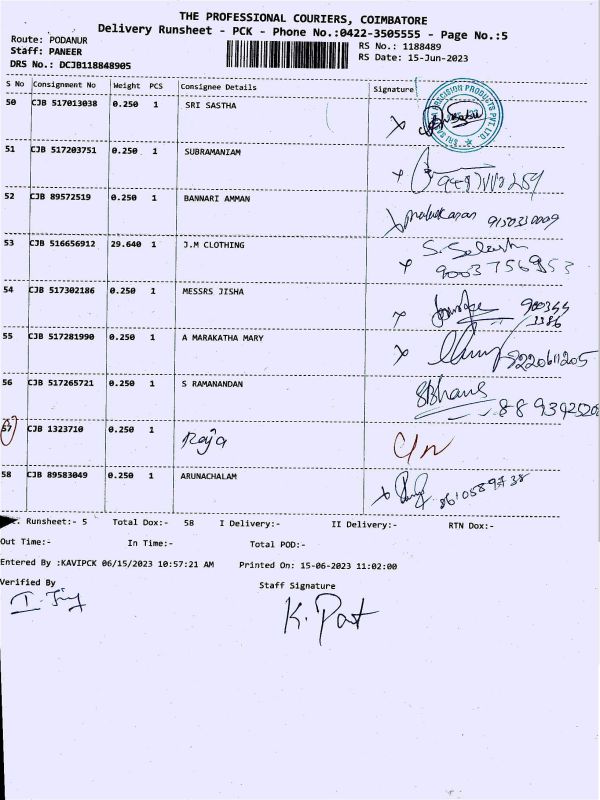 THE PROFESSIONAL COURIERS, COIMBATORE
Delivery Runsheet - PCK - Phone No.:0422-3505555 - Page No.:5
Route: PODANUR
RS No.: 1188489
Staff: PANEER
RS Date: 15-Jun-2023
DRS No.: DCJB118848905
S No Consignment No Weight PCS Consignee Details Signature
50 CJB 517013038 0.250 1 SRI SASTHA
PRECISION PRODUCTS PVT. LTD.
51 CJB 517203751 0.250 1 SUBRAMANIAM
52 CJB 89572519 0.250 1 BANNARI AMMAN
9150330009
53 CJB 516656912 29.640 1 J.M CLOTHING
54 CJB 517302186 0.250 1 MESSRS JISHA
55 CJB 517281990 0.250 1 A MARAKATHA MARY
56 CJB 517265721 0.250 1 S RAMANANDAN
57 CJB 1323710 0.250 1 Raja
58 CJB 89583049 0.250 1 ARUNACHALAM
8610589738
Runsheet:- 5 Total Dox:- 58 I Delivery:- II Delivery:- RTN Dox:-
Out Time:- In Time:- Total POD:-
Entered By :KAVIPCK 06/15/2023 10:57:21 AM Printed On: 15-06-2023 11:02:00
Verified By Staff Signature